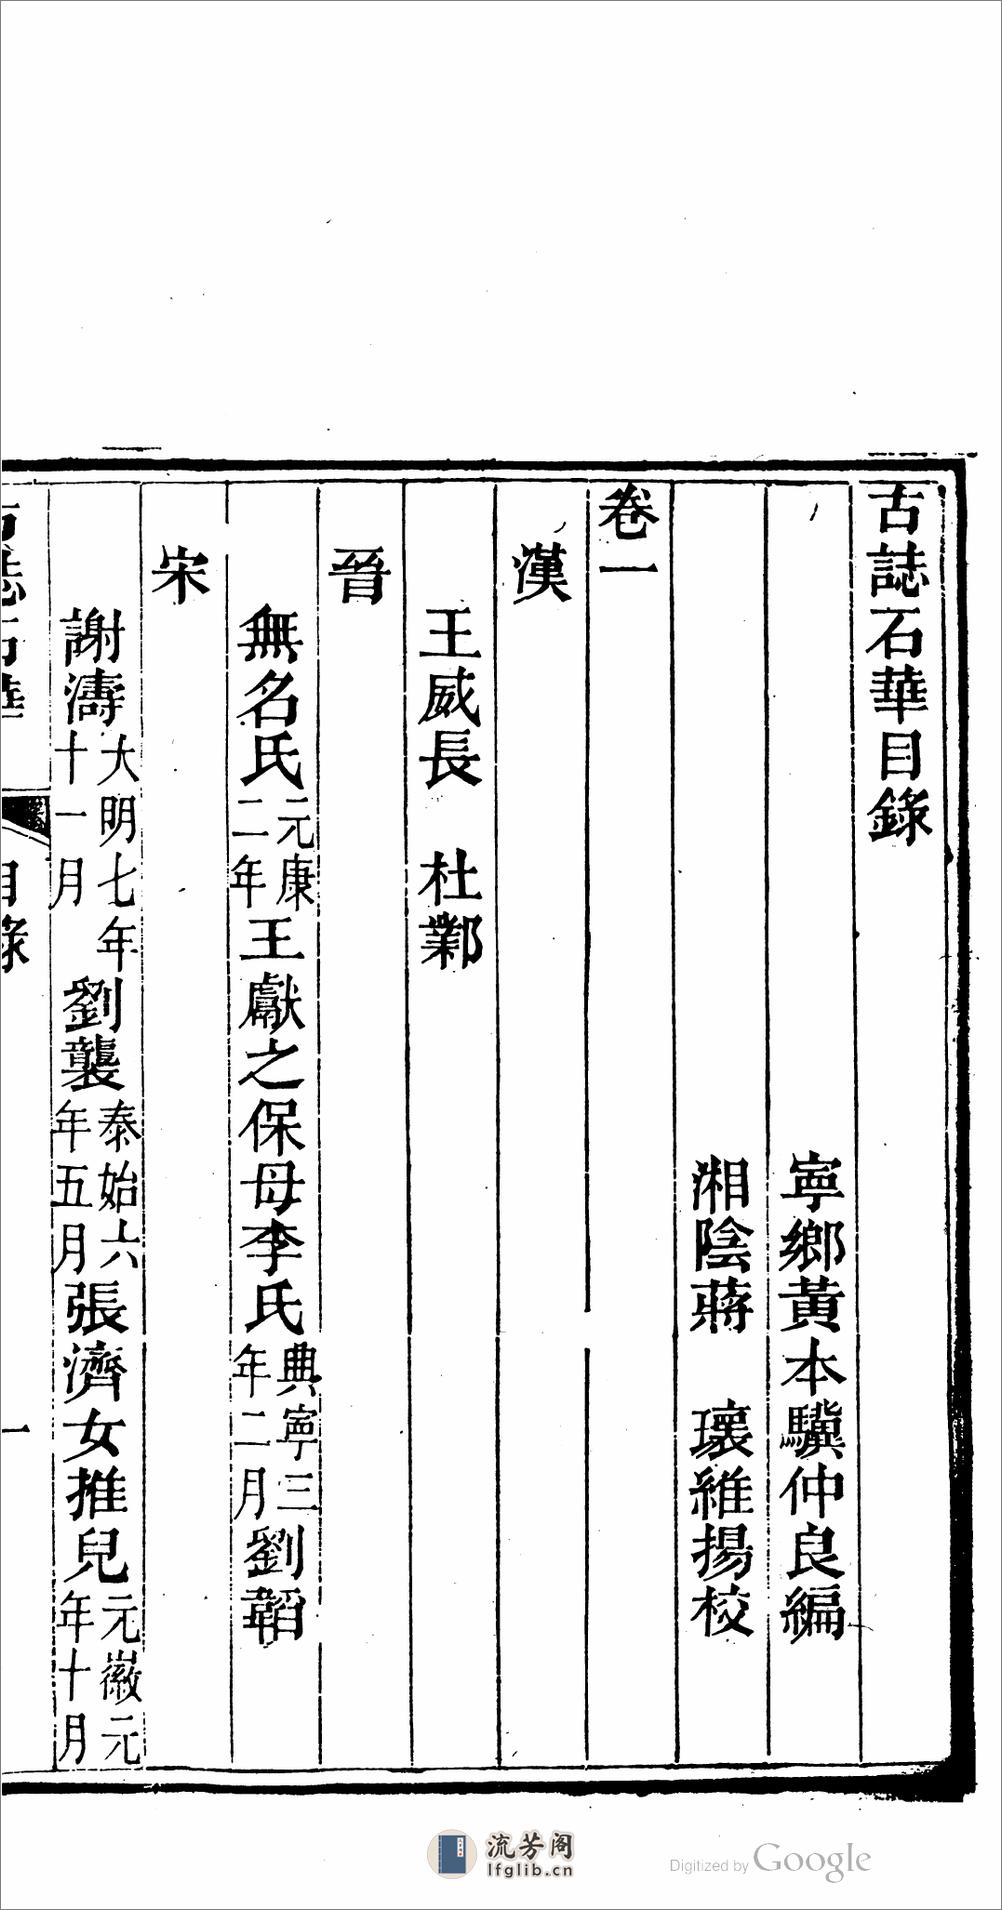 古誌石華目錄
寧鄉黃本驥仲良編
湘陰蔣　瓌維揚校
卷一
漢
王威長　杜鄴
晉
無名氏元康二年王獻之保母李氏典寧三年二月劉韜
宋
謝濤大明七年十一月劉襲泰始六年五月張濟女推兒元徽元年十月
古誌石華　目錄　一
流芳阁
lfglib.cn
Digitized by Google